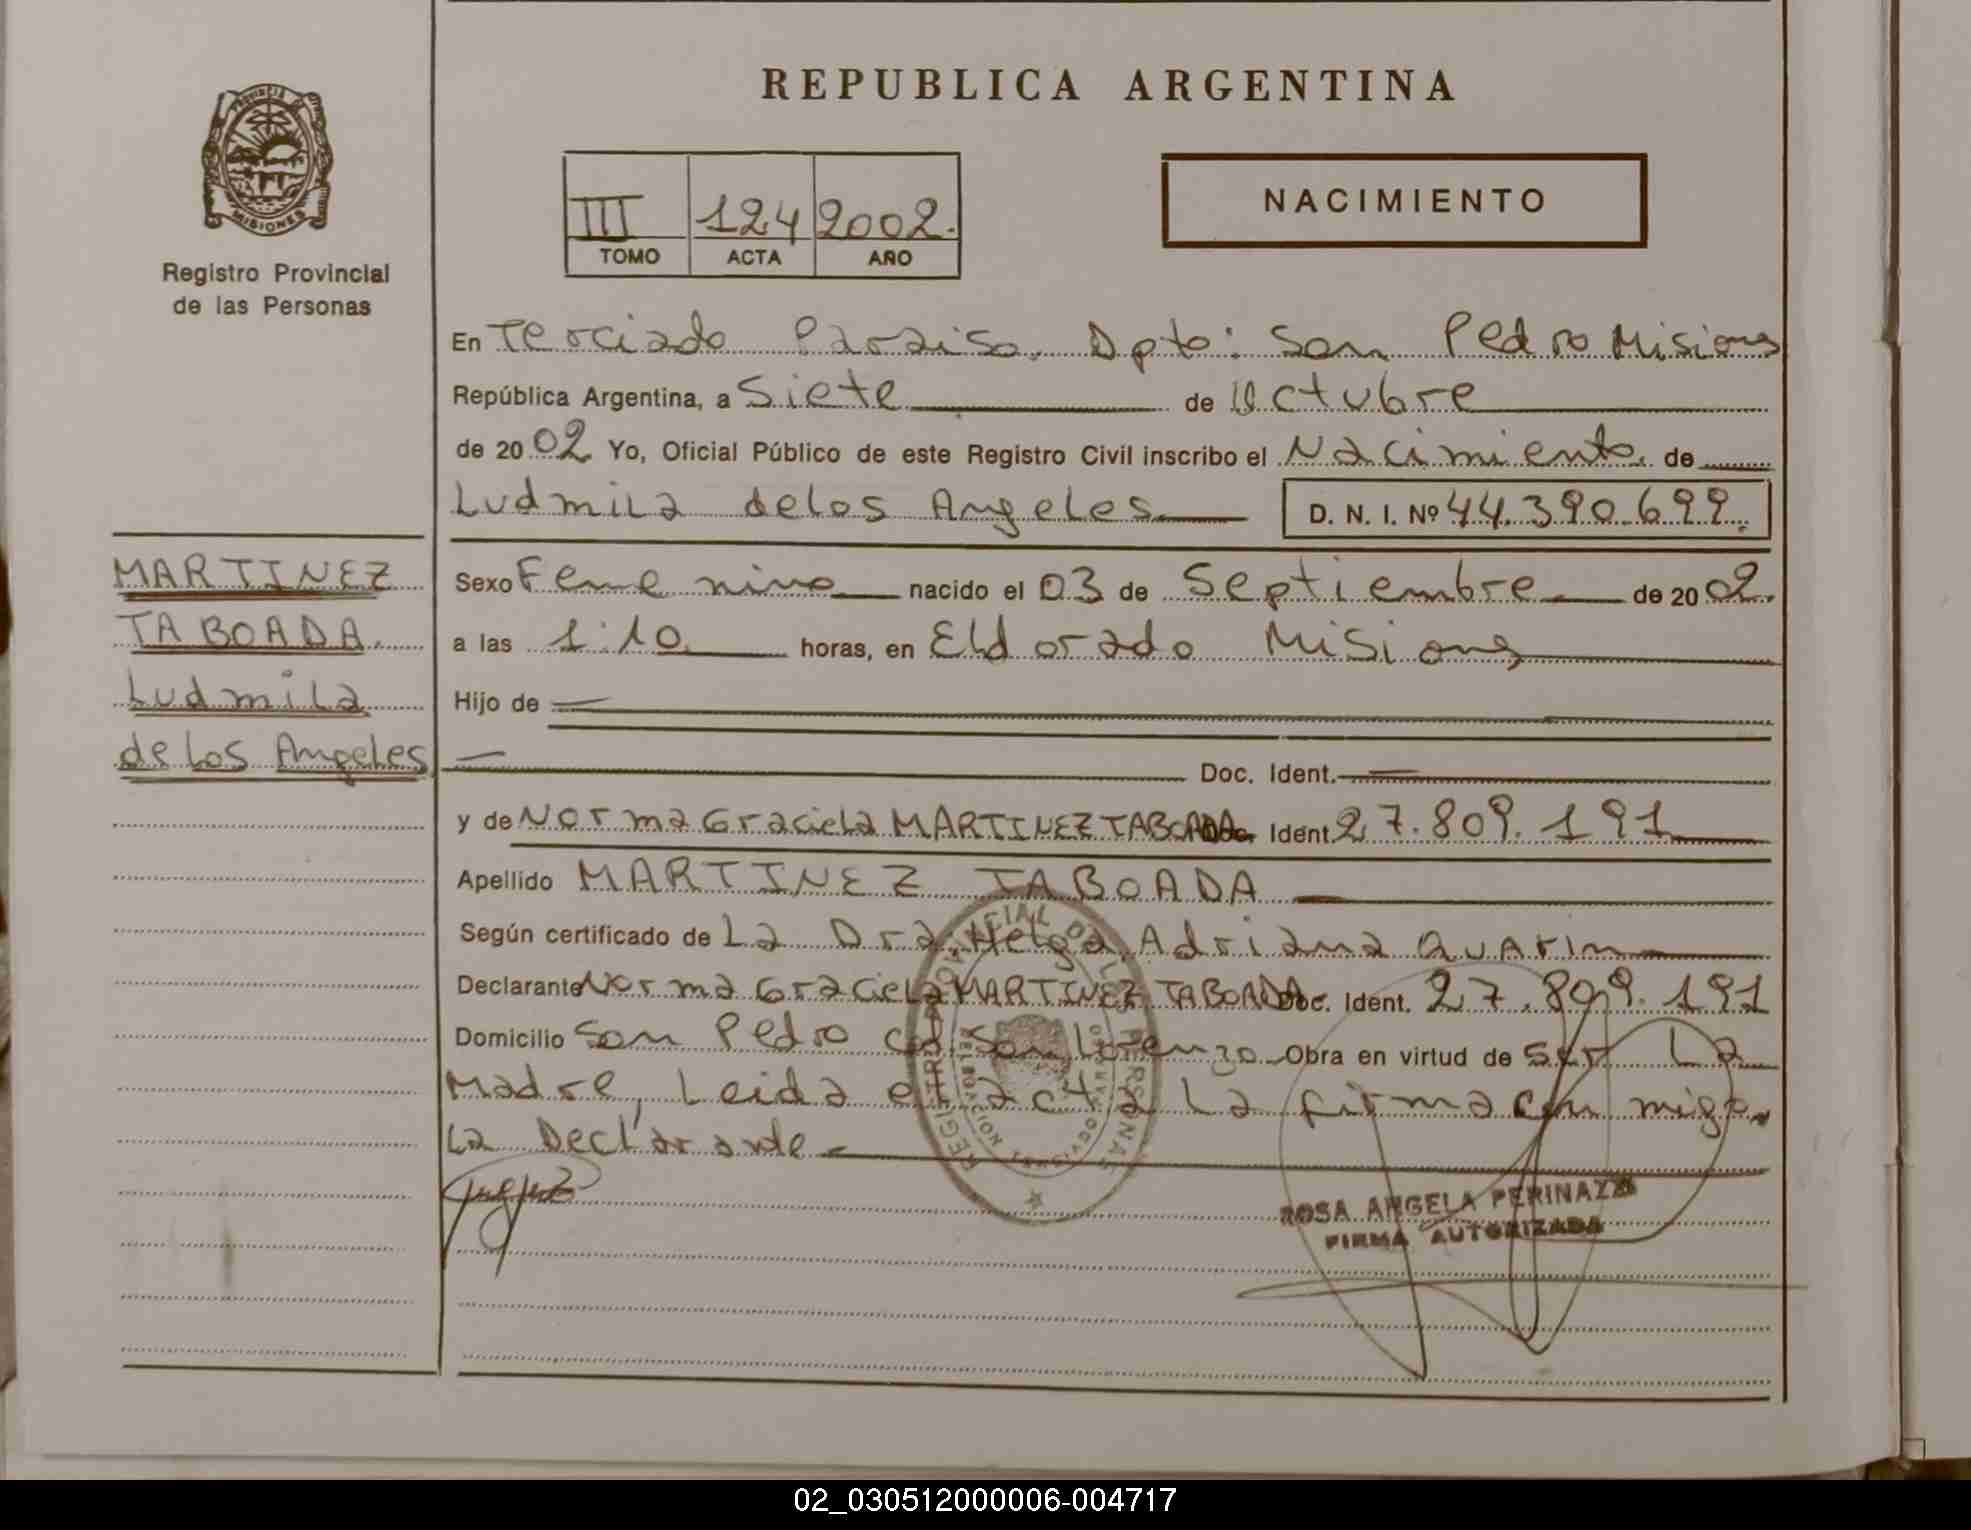 REPUBLICA ARGENTINA
PROVINCIA DE MISIONES
Registro Provincial
de las Personas
III 124 2002.
TOMO ACTA AÑO
NACIMIENTO
En Terciado Paraiso. Dpto: San Pedro Misiones
República Argentina, a Siete de Octubre
de 2002 Yo, Oficial Público de este Registro Civil inscribo el Nacimiento. de
Ludmila de los Angeles D. N. I. Nº 44.390.699.
MARTINEZ
TABOADA.
Ludmila
de los Angeles
Sexo Femenino nacido el 03 de Septiembre de 2002.
a las 1:10 horas, en Eldorado Misiones
Hijo de
Doc. Ident.
y de Norma Graciela MARTINEZ TABOADA Doc. Ident. 27.809.191
Apellido MARTINEZ TABOADA
Según certificado de La Dra. Helga Adriana
Declarante Norma Graciela MARTINEZ TABOADA Doc. Ident. 27.809.191
Domicilio San Pedro San Lorenzo Obra en virtud de ser La
Madre, Leida el acta La firma con migo.
La Declarante
ROSA ANGELA PERINAZZO
FIRMA AUTORIZADA
02_030512000006-004717